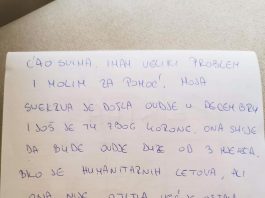 ĆAO SVIMA. IMAM VELIKI PROBLEM
I MOLIM ZA POMOĆ. MOJA
SVEKRVA JE DOŠLA OVDJE U DECEMBRU
I JOŠ JE TU ZBOG KORONE. ONA SMIJE
DA BUDE OVDJE DUŽE OD 3 MJESECA.
BILO JE HUMANITARNIH LETOVA, ALI
ONA NIJE